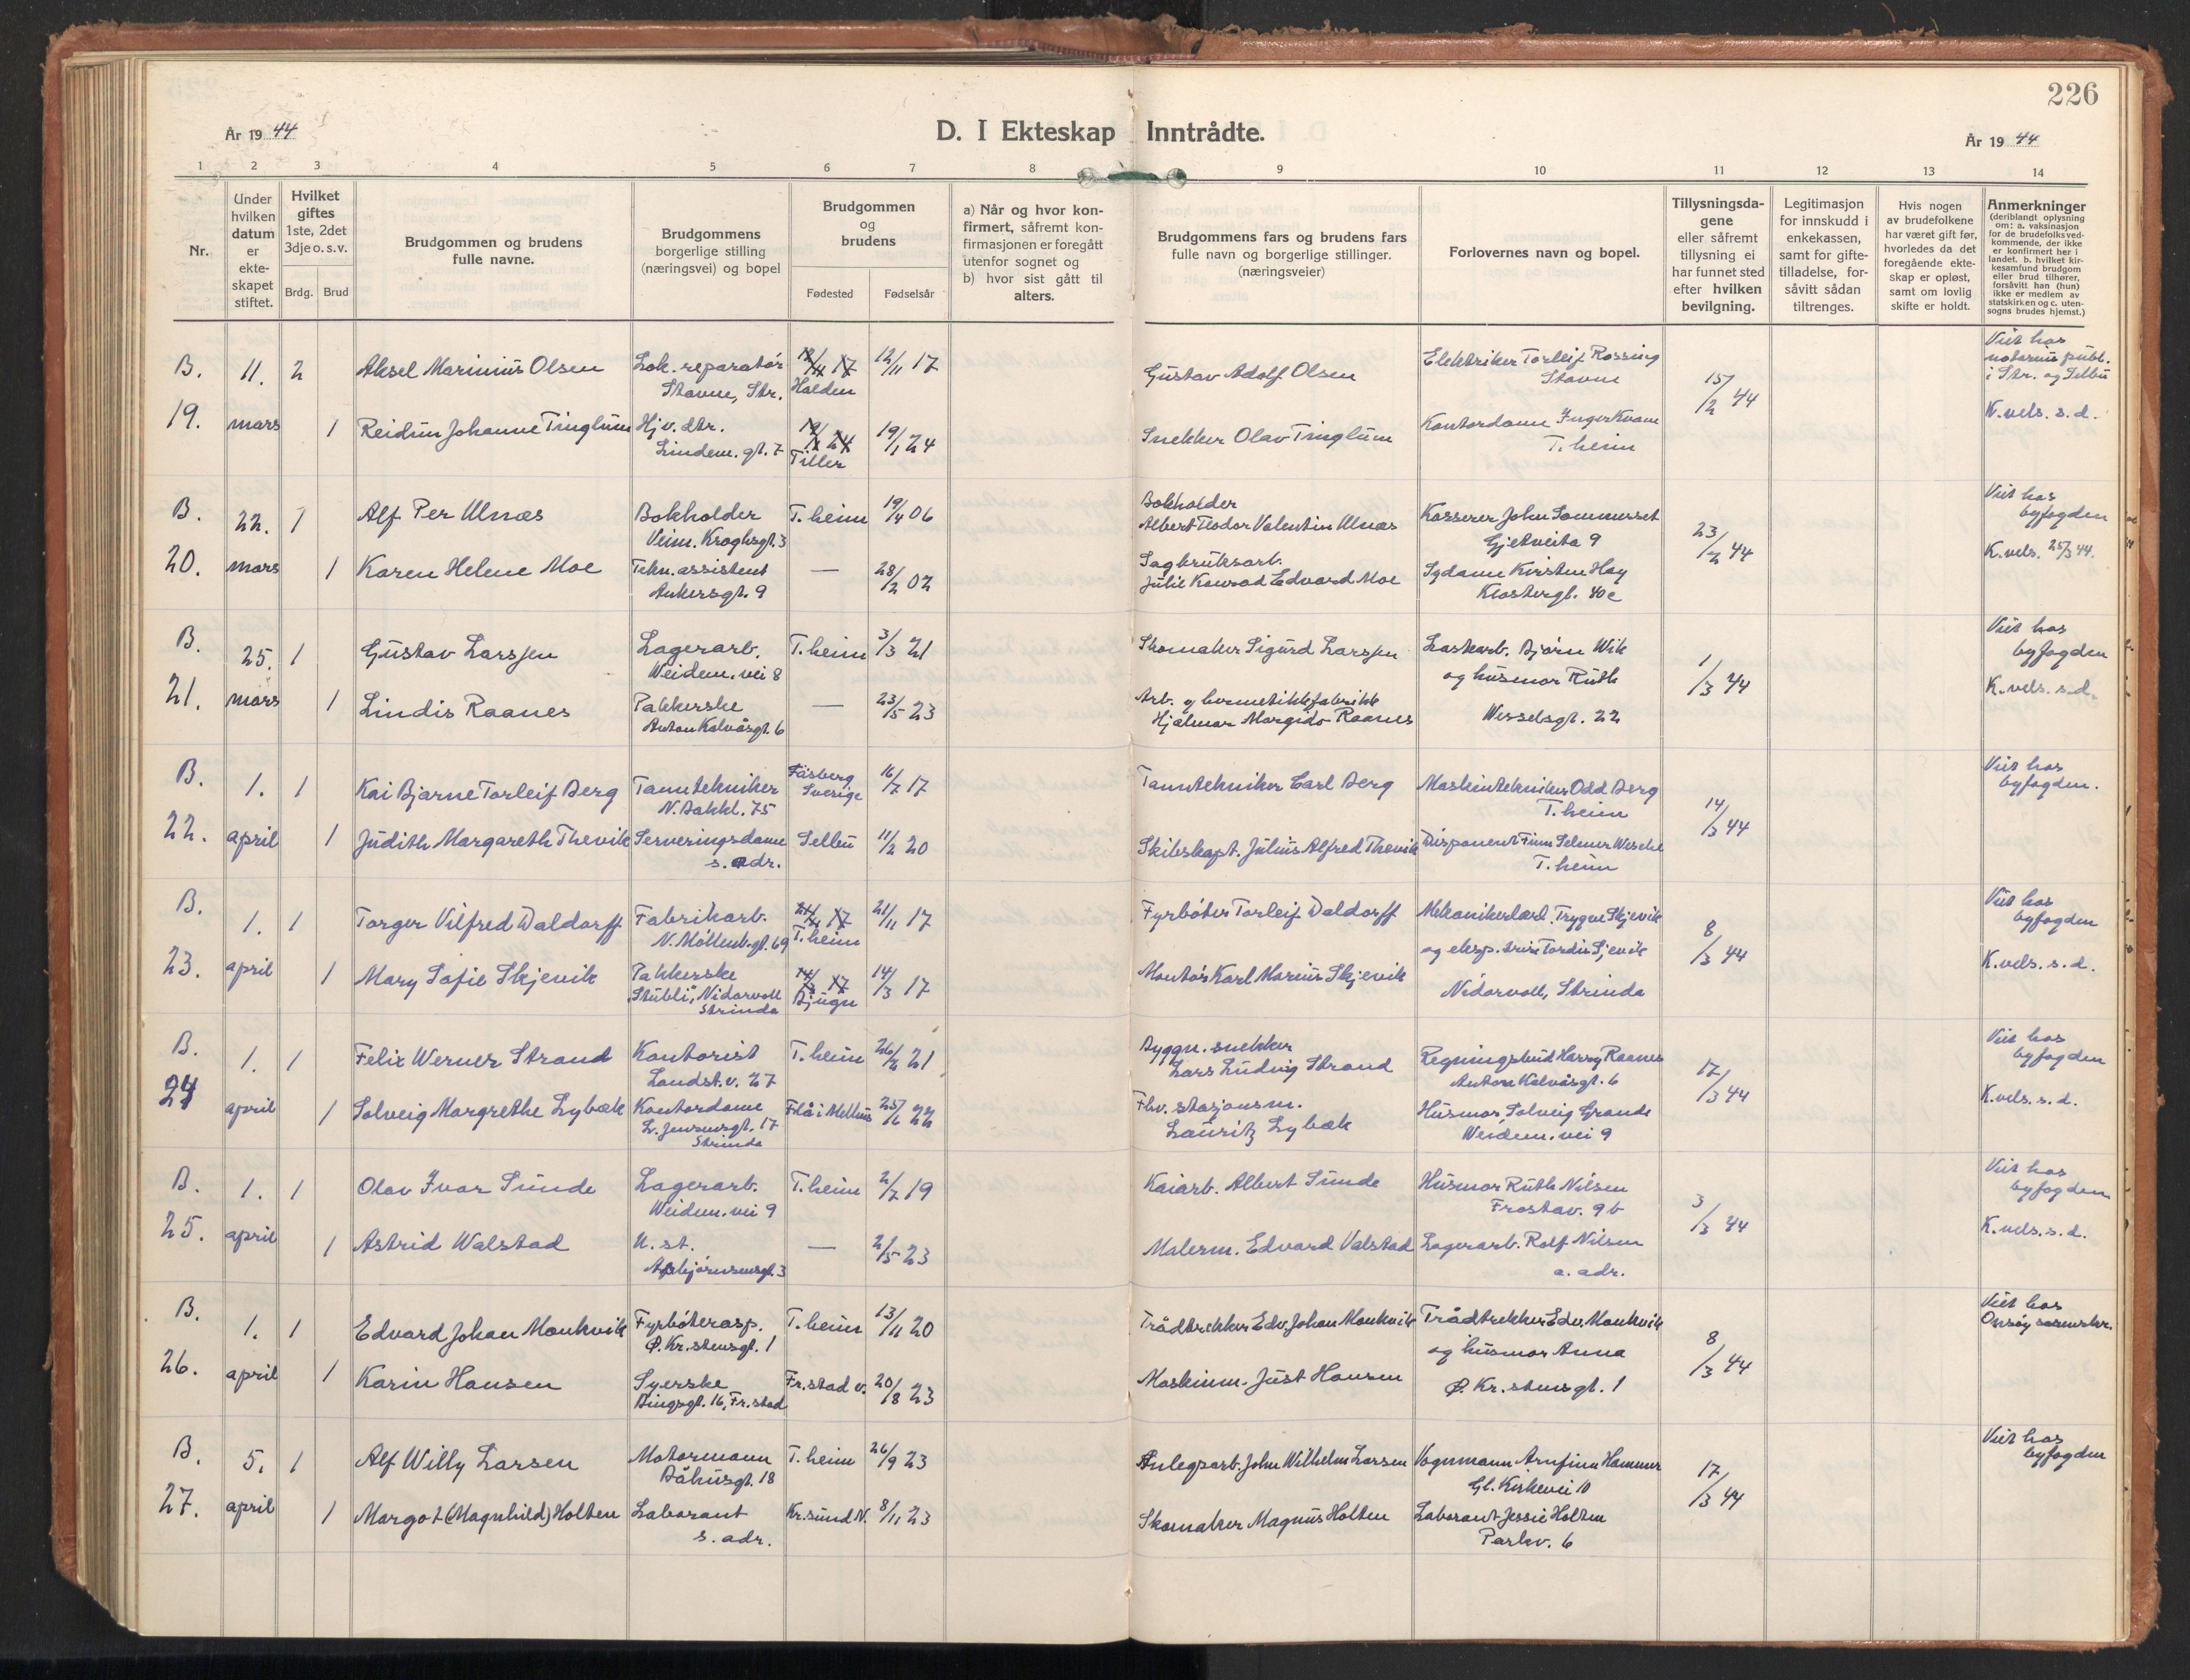 226
År 19 44
D. I Ekteskap Inntrådte.
År 19 44
1 2 3 4 5 6 7 8 9 10 11 12 13 14
Nr.
Under hvilken datum er ekte-skapet stiftet.
Hvilket giftes 1ste, 2det 3dje o. s. v.
Brdg. Brud
Brudgommen og brudens fulle navne.
Brudgommens borgerlige stilling (næringsvei) og bopel
Brudgommen og brudens
Fødested Fødselsår
a) Når og hvor kon-firmert, såfremt kon-firmasjonen er foregått utenfor sognet og
b) hvor sist gått til alters.
Brudgommens fars og brudens fars fulle navn og borgerlige stillinger. (næringsveier)
Forlovernes navn og bopel.
Tillysningsda-gene eller såfremt tillysning ei har funnet sted efter hvilken bevilgning.
Legitimasjon for innskudd i enkekassen, samt for gifte-tilladelse, for-såvitt sådan tiltrenges.
Hvis nogen av brudefolkene har været gift før, hvorledes da det foregående ekte-skap er opløst, samt om lovlig skifte er holdt.
Anmerkninger (deriblandt oplysning om: a. vaksinasjon for de brudefolks ved-kommende, der ikke er konfirmert her i landet. b. hvilket kir-kesamfund brudgom eller brud tilhører, forsåvitt han (hun) ikke er medlem av statskirken og c. uten-sogns brudes hjemst.)
B. 11. 2 Aksel Marinius Olsen Lok. reparatør 12/11 17 12/11 17 Gustav Adolf Olsen Elektriker Torleif Rossing 15/2 44 Viet hos
Stavne, Str. Halden Stavne notarius publ.
i Str. og Selbu
19. mars 1 Reidun Johanne Tinglum Hjv. dtr. 19/1 24 19/1 24 Snekker Olav Tinglum Kontordame Inger Kvam K. vels. s. d.
Lindem. gt. 7 Tiller T. heim
B. 22. 1 Alf Per Ulnæs Bokholder T. heim 19/4 06 Bokholder Kasserer John Sommerset 23/2 44 Viet hos
Veim. Kroghsgt. 3 Albert Teodor Valentin Ulnæs Gjetveita 9 byfogden
20. mars 1 Karen Helene Moe Tekn. assistent — 28/2 02 Sagbruksarb. Sydame Kirsten Hoy K. vels. 25/3 44.
Ankersgt. 9 Julie Konrad Edvard Moe Klostergt. 40c
B. 25. 1 Gustav Larssen Lagerarb. T. heim 3/3 21 Skomaker Sigurd Larssen Lastearb. Bjørn Wik 1/3 44 Viet hos
Weidem. vei 8 og husmor Ruth byfogden
21. mars 1 Lindis Raanes Pakkerske — 23/5 23 Arb. v hermetikkfabrikk K. vels. s. d.
Anton Kalvåsgt. 6 Hjalmar Margido Raanes Wesselsgt. 22
B. 1. 1 Kai Bjarne Torleif Berg Tanntekniker Fäsberg 16/7 17 Tanntekniker Carl Berg Maskintekniker Odd Berg 14/3 44 Viet hos
N. Bakkl. 75 Sverige T. heim byfogden.
22. april 1 Judith Margareth Thevik Serveringsdame Selbu 11/2 20 Skibskapt. Julius Alfred Thevik Disponent Finn Selmer Wesche
s. adr. T. heim
B. 1. 1 Torger Vilfred Waldorff Fabrikarb. 21/11 17 21/11 17 Fyrbøter Torleif Waldorff Mekanikerlærl. Trygve Skjevik 8/3 44 Viet hos
N. Møllenb. gt. 69 T. heim og eksp. trise Tordis Sjevik byfogden
23. april 1 Mary Sofie Skjevik Pakkerske 14/3 17 14/3 17 Montør Karl Marius Skjevik K. vels. s. d.
"Stubli", Nidarvoll Bjugn Nidarvoll, Strinda
Strinda
B. 1. 1 Felix Werner Strand Kontorist T. heim 26/2 21 Byggn. snekker Regningsbud Harry Raanes 17/3 44 Viet hos
Landst. v. 27 Lars Ludvig Strand Anton Kalvåsgt. 6 byfogden
24 april 1 Solveig Margrethe Lybæk Kontordame Flå i Melhus 25/6 22 Fhv. stasjonsm. Husmor Solveig Grande K. vels. s. d.
L. Jensensgt. 17 Lauritz Lybæk Weidem. vei 9
Strinda
B. 1. 1 Olav Ivar Sunde Lagerarb. T. heim 2/7 19 Kaiarb. Albert Sunde Husmor Ruth Nilsen 3/3 44 Viet hos
Weidem. vei 9 Frostav. 9b byfogden
25. april 1 Astrid Walstad U. st. — 2/5 23 Malerm. Edvard Valstad Lagerarb. Rolf Nilsen K. vels. s. d.
Asbjørnsensgt. 3 a. adr.
B. 1. 1 Edvard Johan Monkvik Fyrbøterasp. T. heim 13/11 20 Trådtrekker Edv. Johan Monkvik Trådtrekker Edv. Monkvik 8/3 44 Viet hos
Ø. Kr. stensgt. 1 og husmor Anna Onsøy sorenskr.
26. april 1 Karin Hansen Syerske Fr. stad v. 20/8 23 Maskinm. Just Hansen Ø. Kr. stensgt. 1
Bingsgt. 16, Fr. stad
B. 5. 1 Alf Willy Larsen Motormann T. heim 26/9 23 Anlegsarb. John Wilhelm Larsen Vognmann Arnfinn Hammer 17/3 44 Viet hos
Båhusgt. 18 Gl. Kirkevei 10 byfogden
27. april 1 Margot (Magnhild) Holten Laborant Kr. sund N. 8/11 23 Skomaker Magnus Holten Laborant Jessie Holten
s. adr. Parkv. 6